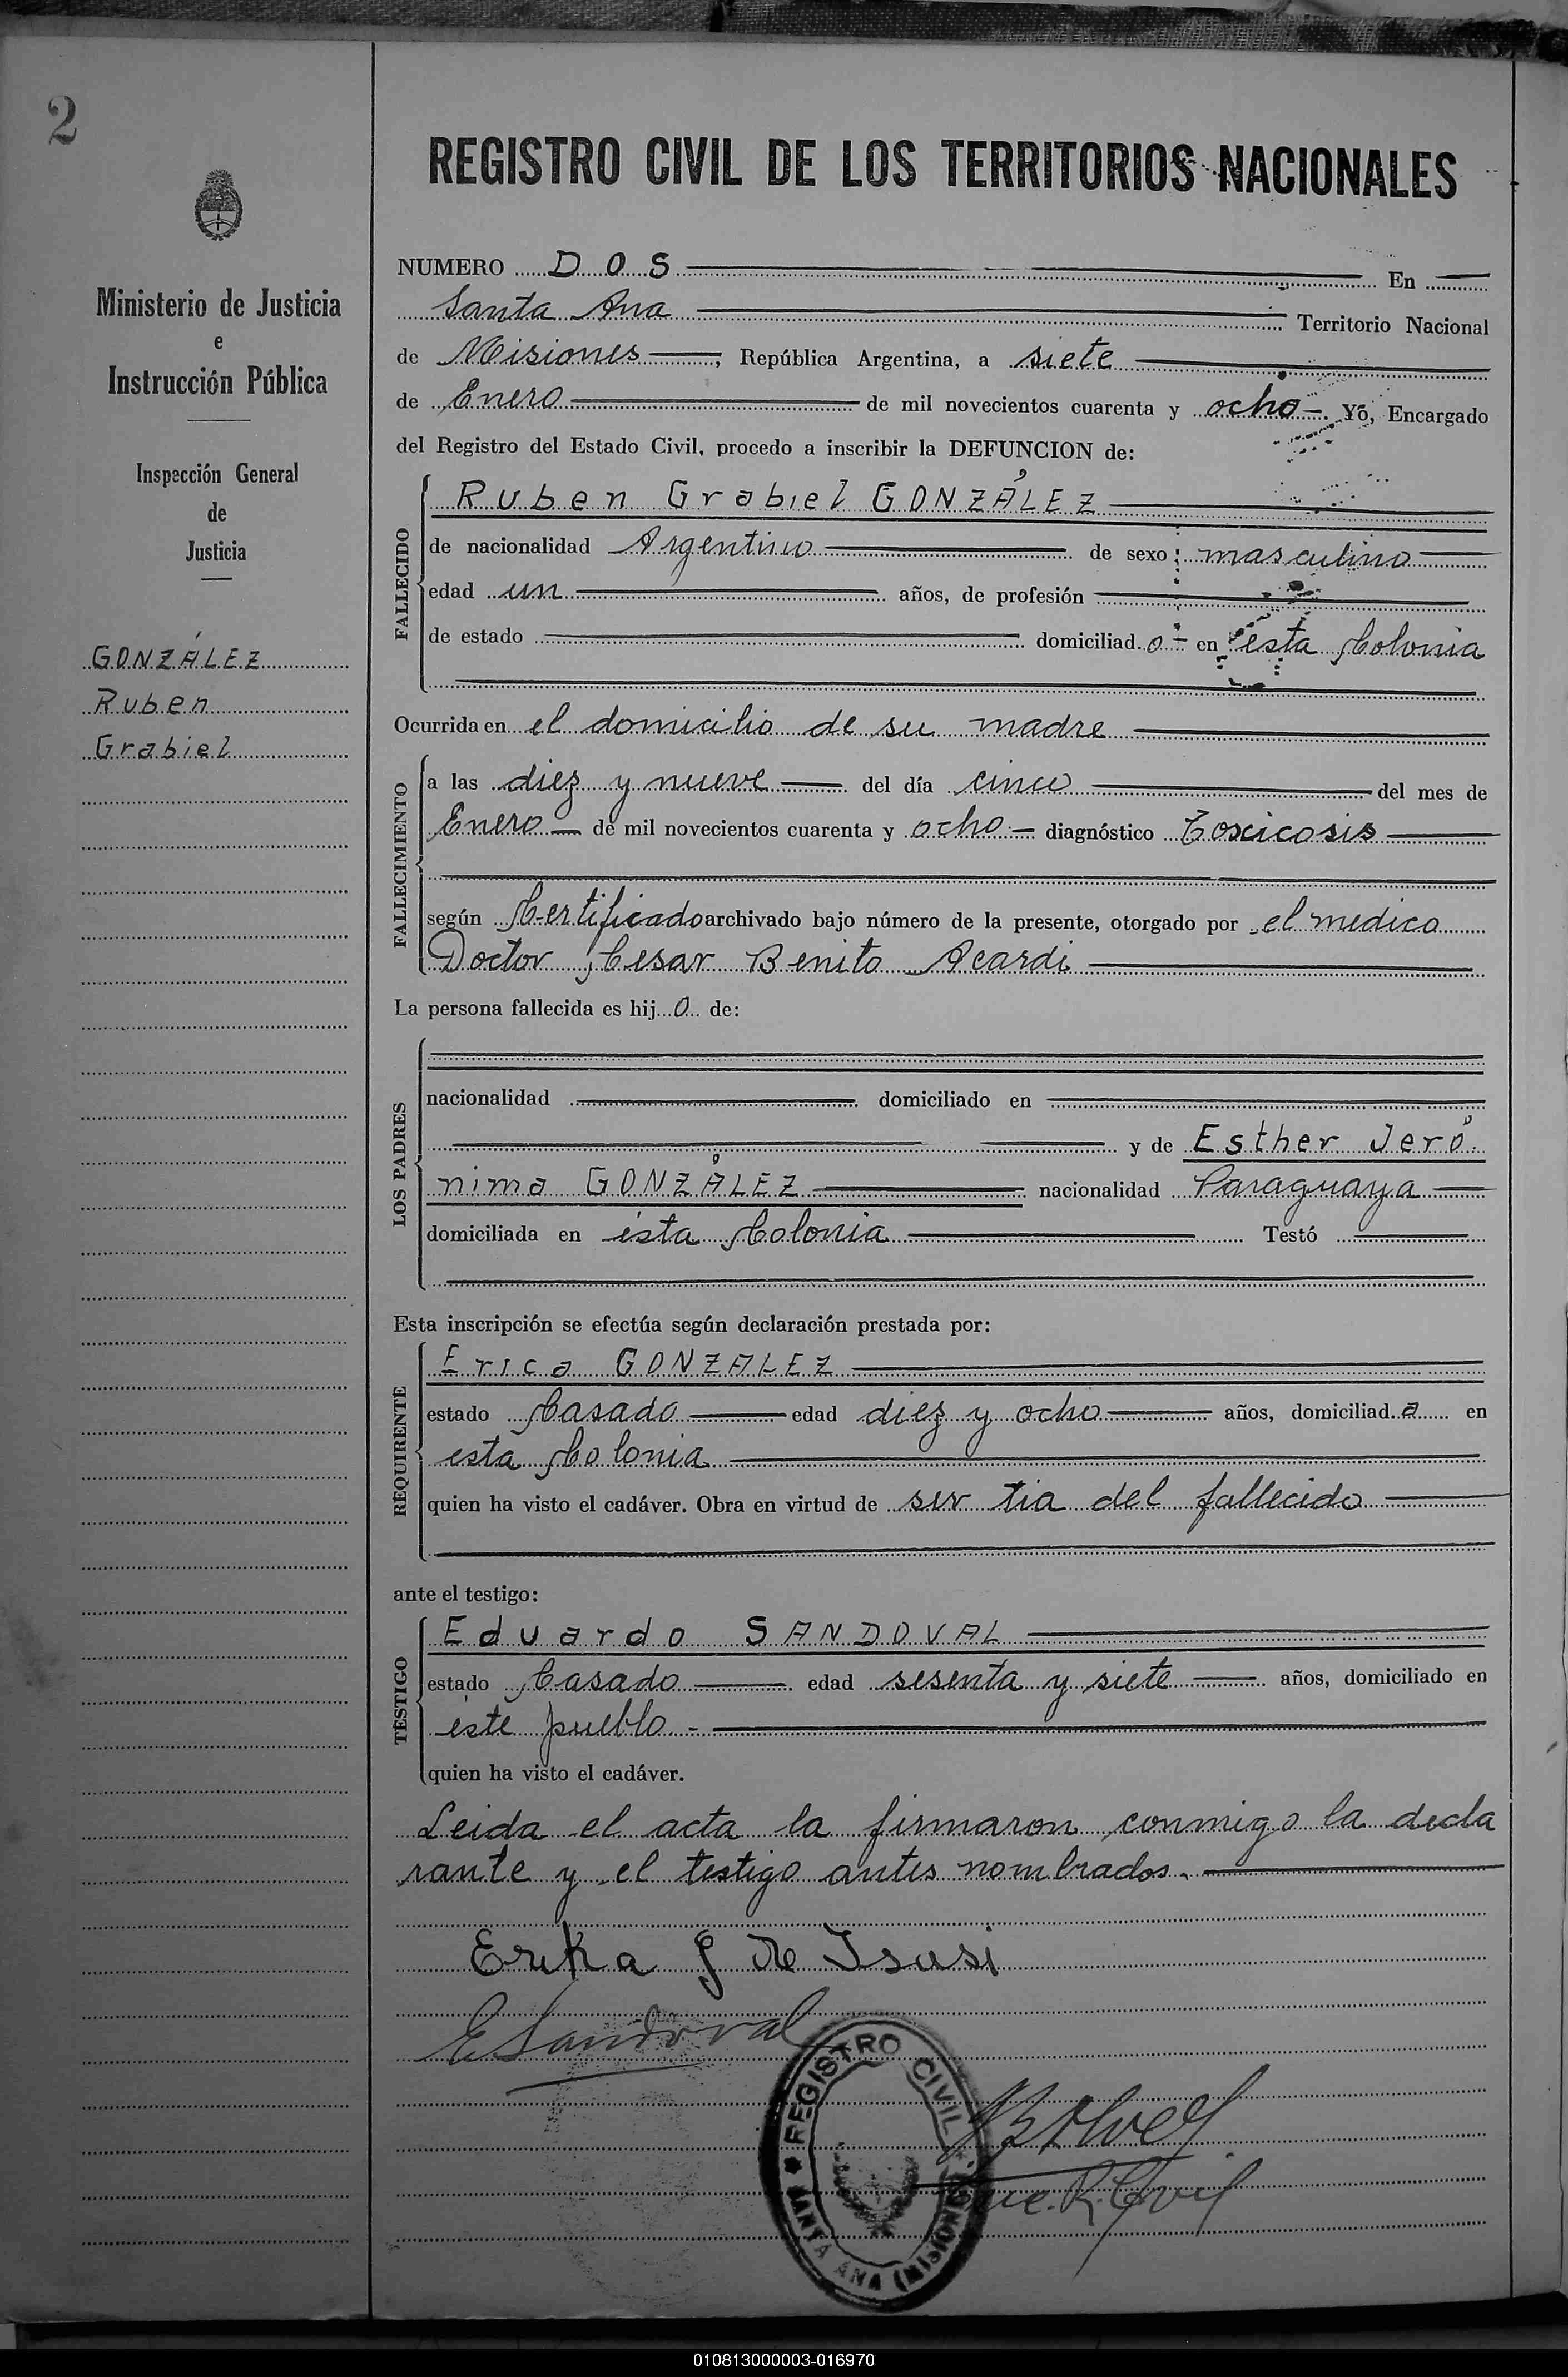 2
REGISTRO CIVIL DE LOS TERRITORIOS NACIONALES
Ministerio de Justicia
e
Instrucción Pública
Inspección General
de
Justicia
GONZÁLEZ
Ruben
Grabiel
NUMERO DOS En
Santa Ana Territorio Nacional
de Misiones, República Argentina, a siete
de Enero de mil novecientos cuarenta y ocho. Yo, Encargado
del Registro del Estado Civil, procedo a inscribir la DEFUNCION de:
FALLECIDO
Ruben Grabiel GONZÁLEZ
de nacionalidad Argentino de sexo masculino
edad un años, de profesión
de estado domiciliad o en esta Colonia
Ocurrida en el domicilio de su madre
FALLECIMIENTO
a las diez y nueve del día cinco del mes de
Enero de mil novecientos cuarenta y ocho diagnóstico Toxicosis
según Certificado archivado bajo número de la presente, otorgado por el medico
Doctor Cesar Benito Acardi
La persona fallecida es hij o de:
LOS PADRES
nacionalidad domiciliado en
y de Esther Jeró
nima GONZÁLEZ nacionalidad Paraguaya
domiciliada en esta Colonia Testó
Esta inscripción se efectúa según declaración prestada por:
REQUIRENTE
Erica GONZALEZ
estado Casada edad diez y ocho años, domiciliad a en
esta Colonia
quien ha visto el cadáver. Obra en virtud de ser tia del fallecido
ante el testigo:
TESTIGO
Eduardo SANDOVAL
estado Casado edad sesenta y siete años, domiciliado en
éste pueblo.-
quien ha visto el cadáver.
Leida el acta la firmaron conmigo la decla
rante y el testigo antes nombrados.
Erika G de Isasi
E Sandoval
REGISTRO CIVIL
SANTA ANA (MISIONES)
R. Civil
010813000003-016970